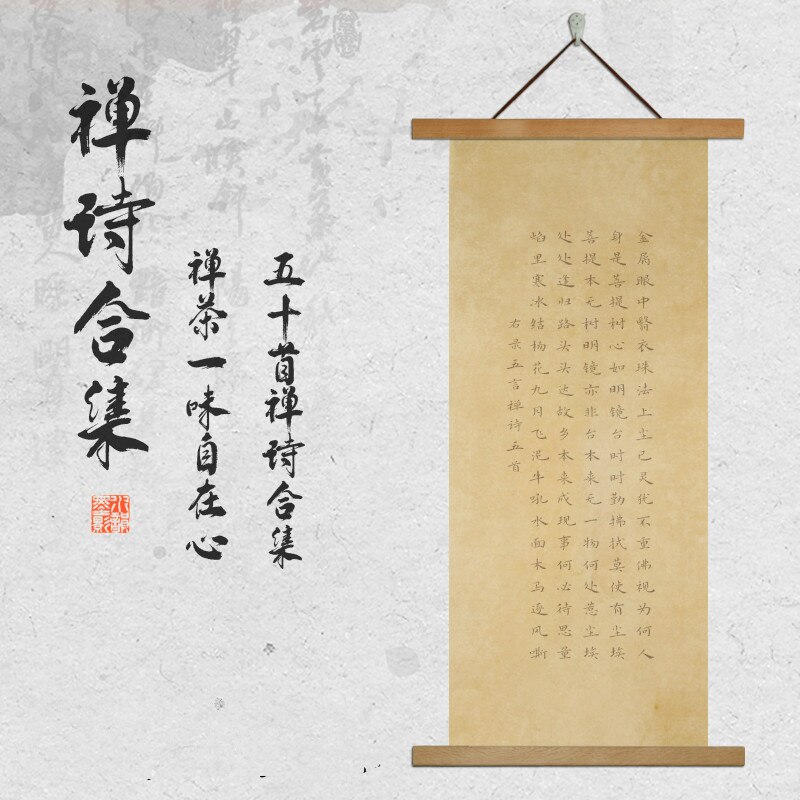 禅诗合集
五十首禅诗合集
禅茶一味自在心
金属眼中翳衣珠法上尘已灵犹不重佛视为何人
身是菩提树心如明镜台时时勤拂拭莫使有尘埃
菩提本无树明镜亦非台本来无一物何处惹尘埃
处处逢归路头头达故乡本来成现事何必待思量
焰里寒冰结杨花九月飞泥牛吼水面木马逐风嘶
右录五言禅诗五首